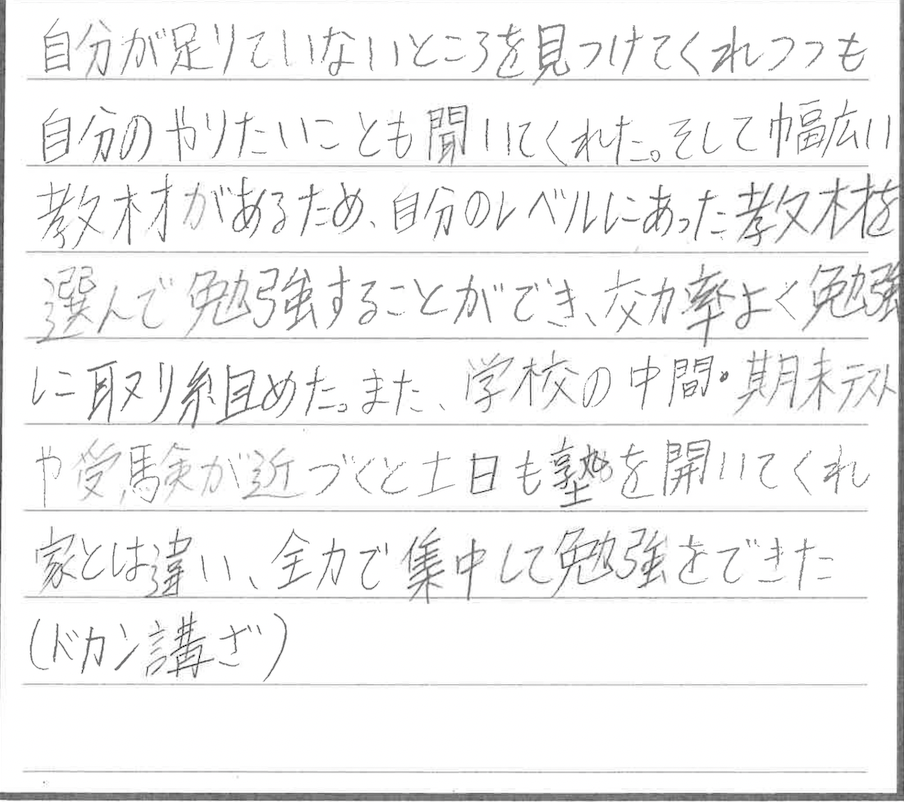 自分が足りていないところを見つけてくれつつも
自分のやりたいことも聞いてくれた。そして幅広い
教材があるため、自分のレベルにあった教材を
選んで勉強することができ、効率よく勉強
に取り組めた。また、学校の中間・期末テスト
や受験が近づくと土日も塾を開いてくれ
家とは違い、全力で集中して勉強をできた
(ドカン講ざ)